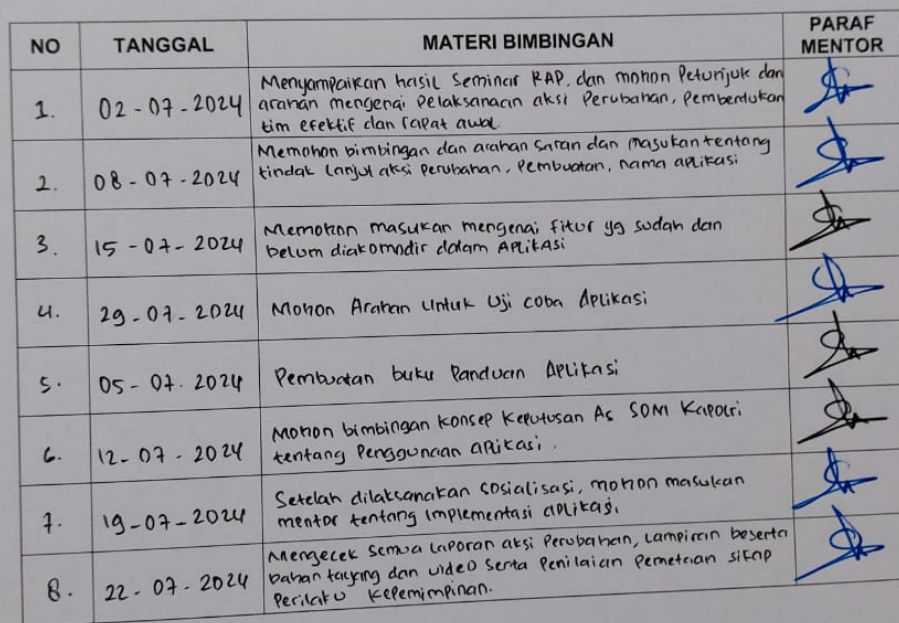 NO TANGGAL MATERI BIMBINGAN PARAF MENTOR
1. 02-07-2024 Menyampaikan hasil Seminar RAP, dan mohon Petunjuk dan
arahan mengenai Pelaksanaan aksi Perubahan, Pembentukan
tim efektif dan rapat awal.
2. 08-07-2024 Memohon bimbingan dan arahan saran dan masukan tentang
tindak lanjut aksi Perubahan, Pembuatan, nama aplikasi
3. 15-07-2024 Memohon masukan mengenai fitur yg sudah dan
belum diakomodir dalam APLikASi
4. 29-07-2024 Mohon Arahan Untuk Uji coba Aplikasi
5. 05-07-2024 Pembuatan buku Panduan Aplikasi
6. 12-07-2024 Mohon bimbingan Konsep Keputusan As SDM Kapolri
tentang Penggunaan aplikasi.
7. 19-07-2024 Setelah dilaksanakan sosialisasi, mohon masukan
mentor tentang implementasi aplikasi.
8. 22-07-2024 Mengecek semua laporan aksi Perubahan, Lampiran beserta
bahan tayang dan video serta Penilaian Pemetaan sikap
Perilaku Kepemimpinan.